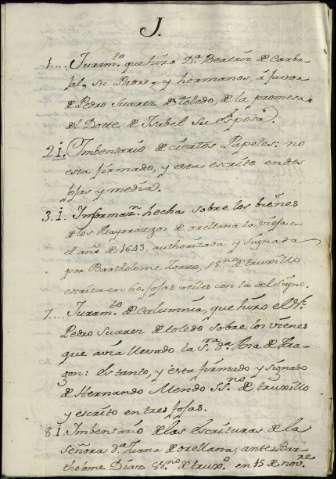 J.
1... Juramto que hizo Da Beatriz de Carba-
jal, su Madre, y hermanos, á favor
de Pedro Suarez de toledo, de la promesa
del Dote de Isabel su esposa.
2 i. Imbentario de ciertos Papeles: no
esta firmado, y esta escrito en dos
fojas y media.
3. i. Informazn hecha sobre los bienes
de los Mayorazgos de orellana la vieja
el año de 1643. authorizada y signada
por Bartholome sno de truxillo
escrita en 60. fojas utiles con la del signo.
7... Juramto de Calumnia, que hizo el Dr
Pedro Suarez de toledo sobre los vienes
que avia llevado la Sra Da Ana de
es tanto, y esta firmado y signado
de Hernando Mendo Sno de truxillo
y escrito en tres fojas.
8 i. Imbentario de las Escrituras de la
Señora Da Juana de orellana, ante Bar-
tholome Diaz Sno de truxo en 15 de novre